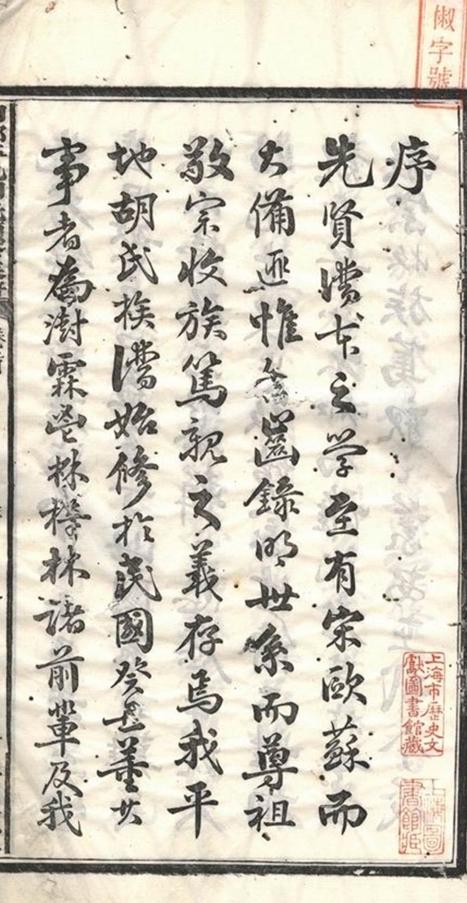 椒字號
序
先賢譜本之學至有宋歐蘇而
大備匪惟齒錄明世系而尊祖
敬宗收族篤親之義存焉我平
地胡氏族譜始修於民國癸丑董其
事者為澍霖林林諸前輩及我
上海市歷史文
獻圖書館藏
上海圖
書館藏